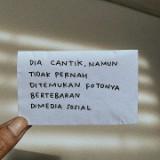 DIA CANTIK, NAMUN
TIDAK PERNAH
DITEMUKAN FOTONYA
BERTEBARAN
DIMEDIA SOSIAL